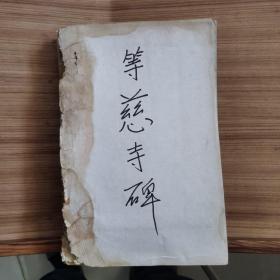 等慈寺碑